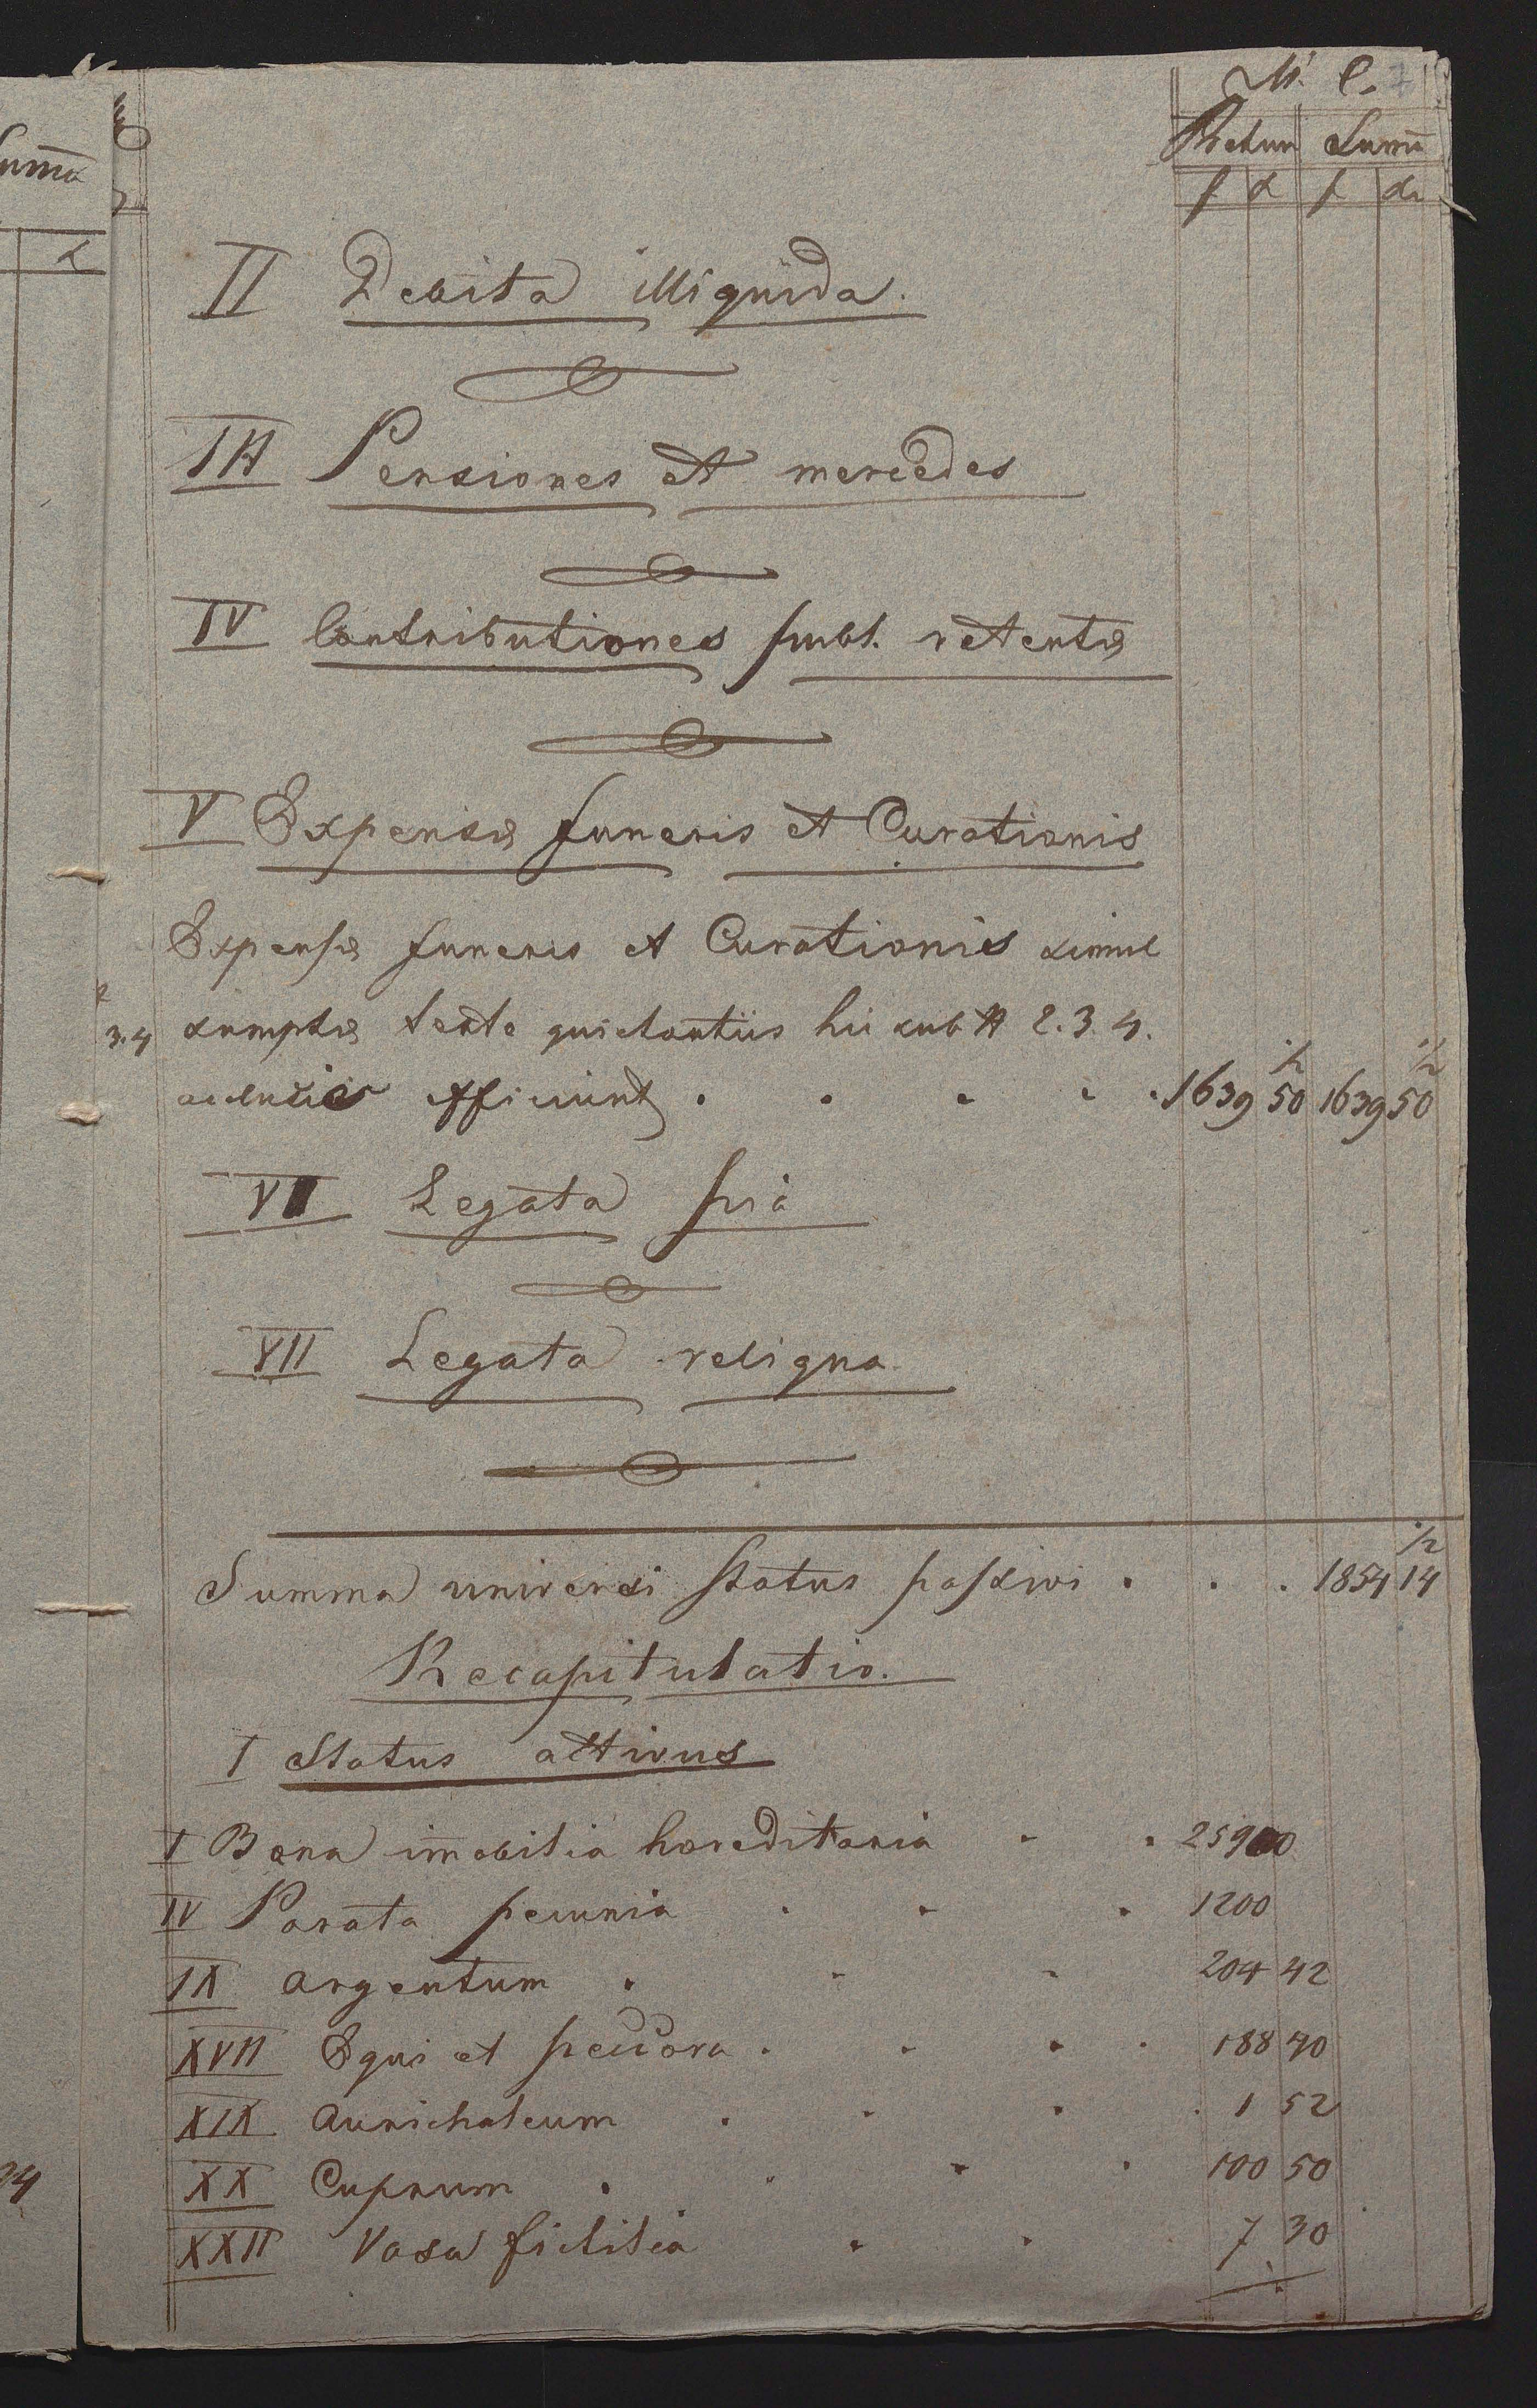 M. C.
Pretium Summa
f d f dr
II Debita illiquida.
III Pensiones et mercedes
IV Contributiones publ. retentæ
V Expensæ funeris et Curationis
Expensæ funeris et Curationis simul
3.4 sumptæ teste quietantiis hic sub # 2. 3. 4.
acclusis efficiunt . . . . . 1639 50 1/2 1639 50 1/2
VI Legata pia
VII Legata reliqua.
Summa universi status passivi . . . 1854 14 1/2
Recapitulatio.
I Status activus
I Bona imobilia hæreditaria . . 25900
IV Parata pecunia . . . 1200
IX Argentum . . . 204 42
XVII Equi et peccora . . . . 188 40
XIX Aurichalcum . . . . 1 52
XX Cuprum . . . . 100 50
XXII Vasa fictilia . . 7 30